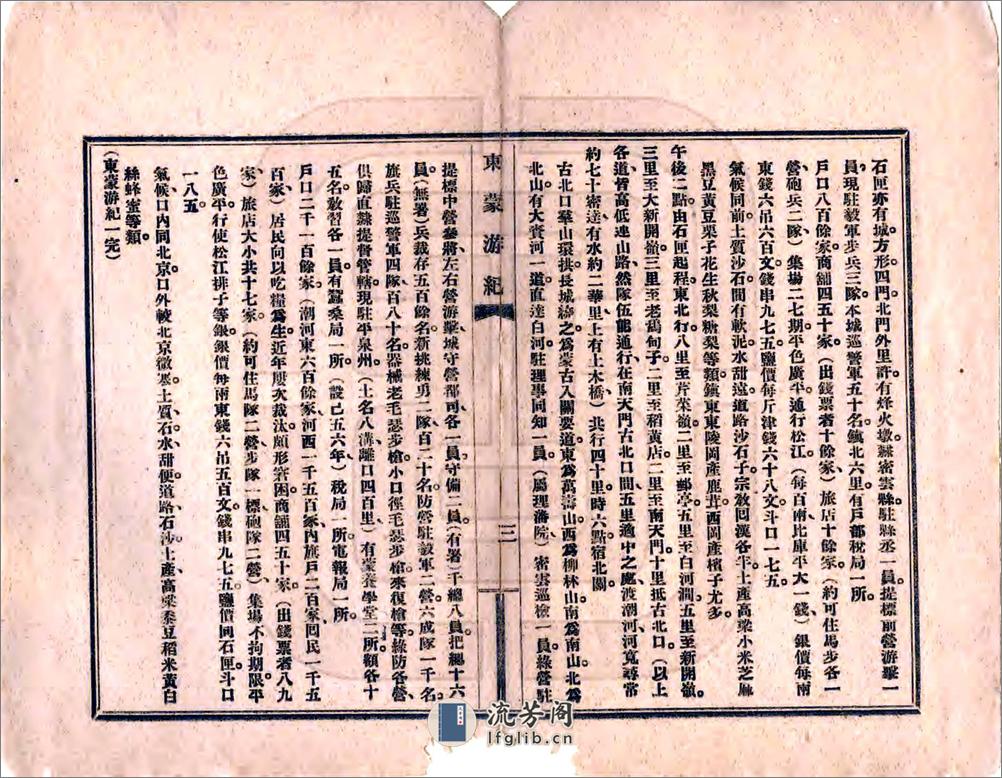 石匣亦有城方形四門北門外里許有烽火墩隷密雲縣駐縣丞一員提標前營游擊一
員現駐毅軍步兵三隊本城巡警軍五十名鎭北六里有戶部稅局一所
戶口八百餘家商舖四五十家（出錢票者十餘家）旅店十餘家（約可住馬步各一
營砲兵二隊）集場二七期平色廣平通行松江（每百兩比庫平大一錢）銀價每兩
東錢六吊六百文錢串九七五鹽價每斤津錢六十八文斗口一七五
氣候同前土質沙石間有軟泥水甜遠道路沙石子宗敎回漢各半土產高粱小米芝麻
黑豆黃豆栗子花生秋梨糖梨等類鎭東東陵岡產鹿茸西岡產檳子尤多
午後二點由石匣起程東北行八里至芹菜嶺二里至郵亭五里至白河澗五里至新開嶺
三里至大新開嶺三里至老鴰甸子二里至稻黃店二里至南天門十里抵古北口（以上
各道皆高低連山路然隊伍能通行在南天門古北口間五里適中之處渡潮河河寬尋常
約七十密達有水約二華里上有土木橋）共行四十里時六點宿北關
古北口羣山環拱長城繚之爲蒙古入關要道東爲萬壽山西爲柳林山南爲南山北爲
北山有大賚河一道直達白河駐理事同知一員（屬理藩院）密雲巡檢一員綠營駐
東蒙游紀
三
提標中營參將左右營游擊城守營都司各一員守備二員（有署）千總八員把總十六
員（無署）兵裁存五百餘名新挑練勇二隊百二十名防營駐毅軍二營六成隊一千名
旗兵駐巡警軍四隊百八十名器械老毛瑟步槍小口徑毛瑟步槍來復槍等綠防各營
俱歸直隷提督管轄現駐平泉州（土名八溝離口四百里）有蒙養學堂二所額各十
五名敎習各一員有蠶桑局一所（設已五六年）稅局一所電報局一所
戶口二千一百餘家（潮河東六百餘家河西一千五百家內旗戶二百家回民一千五
百家）居民向以吃糧爲生近年屢次裁汰頗形窘困商舖四五十家（出錢票者八九
家）旅店大小共十七家（約可住馬隊二營步隊一標砲隊二營）集場不拘期限平
色廣平行使松江排子等銀銀價每兩東錢六吊五百文錢串九七五鹽價同石匣斗口
一八五
氣候口內同北京口外較北京微寒土質石水甜便道路石沙土產高粱黍豆稻米黃白
絲蜂蜜等類
（東蒙游紀一完）
流芳阁
lfglib.cn